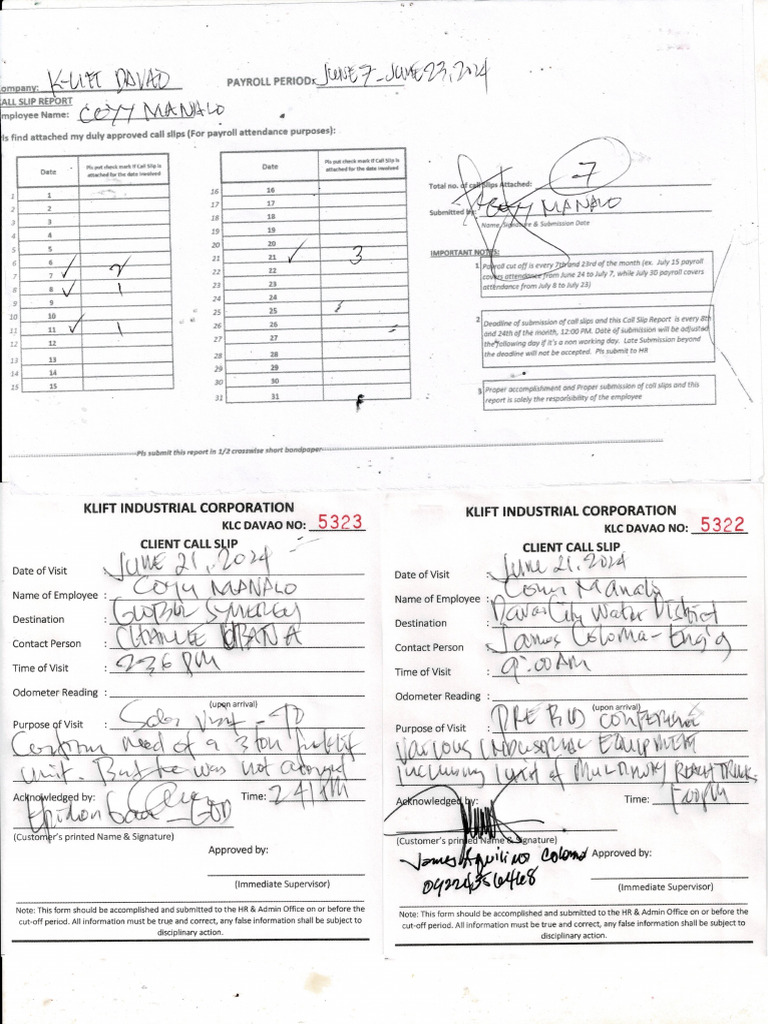 ompany: K-LIFT DAVAO PAYROLL PERIOD: JUNE 7 - JUNE 23, 2024
ALL SLIP REPORT
mployee Name: COYY MANALO
ls find attached my duly approved call slips (For payroll attendance purposes):
Date Pls put check mark if Call Slip is attached for the date involved
1 1
2 2
3 3
4 4
5 5
6 6
7 7 ✓ 2
8 8 ✓ 1
9 9
10 10
11 11 ✓ 1
12 12
13 13
14 14
15 15
Date Pls put check mark if Call Slip is attached for the date involved
16 16
17 17
18 18
19 19
20 20
21 21 ✓ 3
22 22
23 23
24 24
25 25
26 26
27 27
28 28
29 29
30 30
31 31
Total no. of call slips Attached: 7
Submitted By: COYY MANALO
Name, Signature & Submission Date
IMPORTANT NOTES:
1 Payroll cut off is every 7th and 23rd of the month (ex. July 15 payroll
covers attendance from June 24 to July 7, while July 30 payroll covers
attendance from July 8 to July 23)
2 Deadline of submission of call slips and this Call Slip Report is every 8th
and 24th of the month, 12:00 PM. Date of submission will be adjusted
the following day if it's a non working day. Late Submission beyond
the deadline will not be accepted. Pls submit to HR
3 Proper accomplishment and Proper submission of call slips and this
report is solely the responsibility of the employee
Pls submit this report in 1/2 crosswise short bondpaper
KLIFT INDUSTRIAL CORPORATION
KLC DAVAO NO: 5323
CLIENT CALL SLIP
Date of Visit : JUNE 21, 2024
Name of Employee : COYY MANALO
Destination : GLOBAL SYNERGY
Contact Person : CHARLIE UBANA
Time of Visit : 2:36 PM
Odometer Reading :
(upon arrival)
Purpose of Visit : Sales Visit - TO
Confirm need of a 3 ton forklift
unit. But he was not around
Acknowledged by: Time: 2:41 PM
(Customer's printed Name & Signature)
Approved by:
(Immediate Supervisor)
Note: This form should be accomplished and submitted to the HR & Admin Office on or before the
cut-off period. All information must be true and correct, any false information shall be subject to
disciplinary action.
KLIFT INDUSTRIAL CORPORATION
KLC DAVAO NO: 5322
CLIENT CALL SLIP
Date of Visit : June 21, 2024
Name of Employee : Manalo
Destination : Davao City Water District
Contact Person : James Coloma - Eng'g
Time of Visit : 9:00 AM
Odometer Reading :
(upon arrival)
Purpose of Visit : PRE BID CONFERENCE
VARIOUS INDUSTRIAL EQUIPMENT
INCLUDING 1 unit of MULTIWAY REACH TRUCK
Acknowledged by: Time: 5:00 PM
(Customer's printed Name & Signature)
James Aquilino Coloma Approved by:
(Immediate Supervisor)
Note: This form should be accomplished and submitted to the HR & Admin Office on or before the
cut-off period. All information must be true and correct, any false information shall be subject to
disciplinary action.